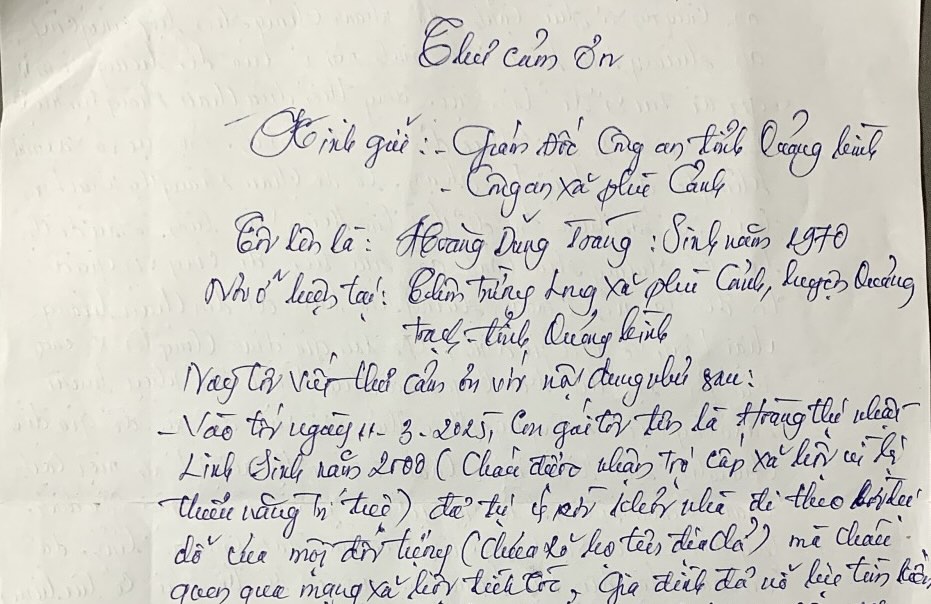 Thư cảm ơn
Kính gửi: - Giám đốc Công an tỉnh Quảng bình
- Công an xã phù Cảnh
Tôn tên là: Hoàng Dũng Trang: Sinh năm 1970
Nhà ở hiện tại: Thôn Trùng xã phù Cảnh, huyện Quảng
trạch - tỉnh Quảng bình
Nay tôi viết thư cảm ơn với nội dung như sau:
- Vào tối ngày 11-3-2025, Con gái tôi tên là Hoàng thị nhật
Linh Sinh năm 2000 (Cháu được nhận trợ cấp xã hội vì bị
thiểu năng trí tuệ) đã tự ý rời khỏi nhà đi theo lời dụ
dỗ của một đối tượng (chưa rõ họ tên địa chỉ) mà cháu
quen qua mạng xã hội tích tóc, Gia đình đã nỗ lực tìm kiếm